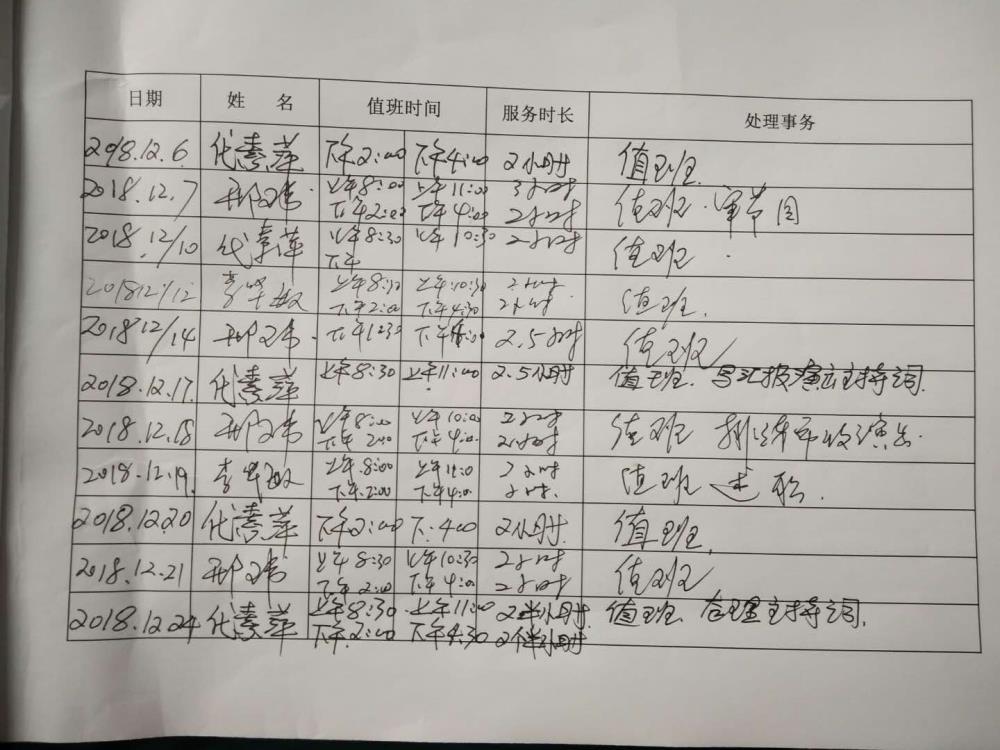 日期 姓 名 值班时间 服务时长 处理事务
2018.12.6. 代素萍 下午2:00 下午4:00 2小时 值班.
2018.12.7 上午8:00 上午11:00 3小时 值班.审节目
下午2:00 下午4:00 2小时
2018.12/10 代素萍 上午8:30 上午10:30 2小时 值班.
下午
201812/12 李 敏 上午8:30 上午10:30 2小时. 值班.
下午2:00 下午4:30 2小时
201812/14 下午 下午 2.5小时 值班
2018.12.17. 代素萍 上午8:30 上午11:00 2.5小时 值班. 写汇报演出主持词.
2018.12.18 上午8:00 上午10:00 2小时 值班
下午2:00 下午4:00 2小时
2018.12.19. 李 敏 上午.8:00 上午 小时 值班 述职.
下午2:00 下午4:00 2小时.
2018.12.20 代素萍 下午2:00 下.4:00 2小时. 值班.
2018.12.21 上午8:30 上午10:30 2小时 值班
下午2:00 下午4:00 2小时
2018.12.24 代素萍 上午8:30 上午11:00 2半小时. 值班. 主持词.
下午2:00 下午4:30 2半小时